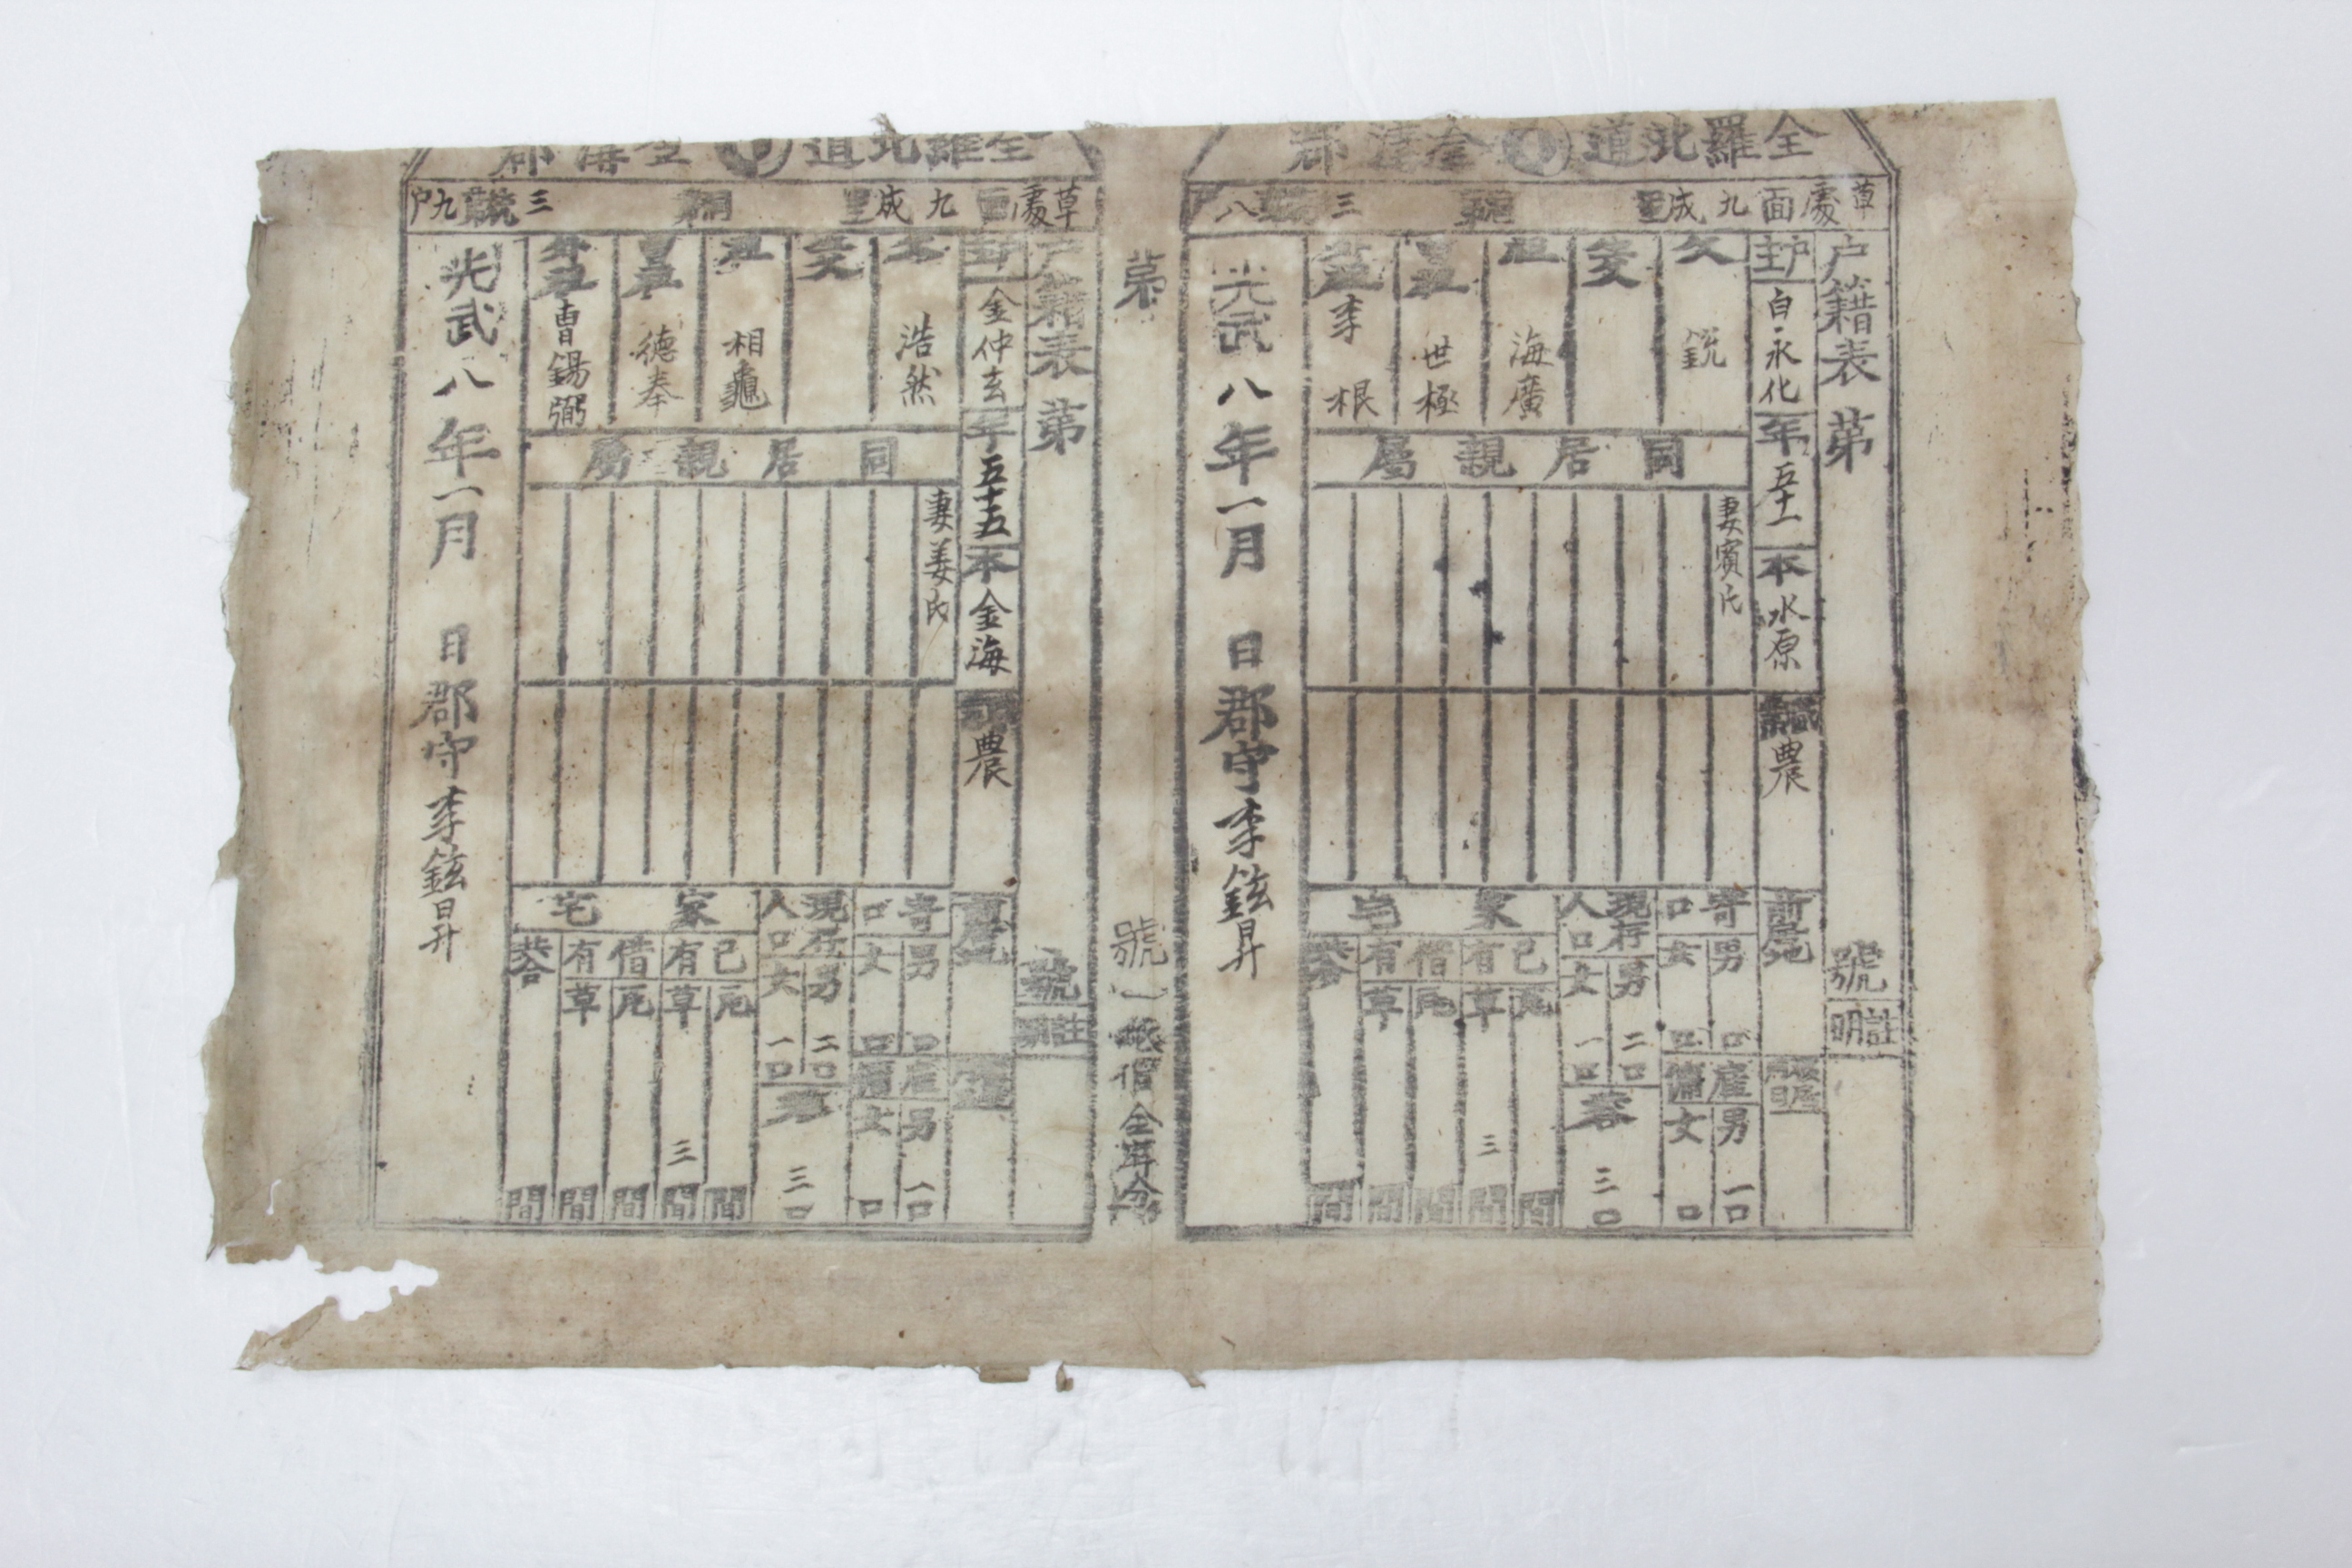 全羅北道 金溝郡
草處面九成里 統 三統八戶
戶籍表 第 號
註明
戶主 白永化 年 五十一 本 水原 職 農 前居地
父 銳
生父
祖 海廣
曾祖 世極
外祖 李根
同居親屬
妻賓氏
寄口 男 口 女 口
雇傭 男 一口 女 口
現存人口 男 二口 女 一口
共合 三口
家宅
己有 瓦 間 草 三間
借有 瓦 間 草 間
共合 間
光武八年一月 日 郡守 李鉉昇
第 號 紙價 全 分
全羅北道 金溝郡
草處面九成里 統 三統九戶
戶籍表 第 號
註明
戶主 金仲玄 年 五十五 本 金海 職 農 前居地
父 浩然
生父
祖 相龜
曾祖 德奉
外祖 曺錫弼
同居親屬
妻姜氏
寄口 男 口 女 口
雇傭 男 一口 女 口
現存人口 男 二口 女 一口
共合 三口
家宅
己有 瓦 間 草 三間
借有 瓦 間 草 間
共合 間
光武八年一月 日 郡守 李鉉昇